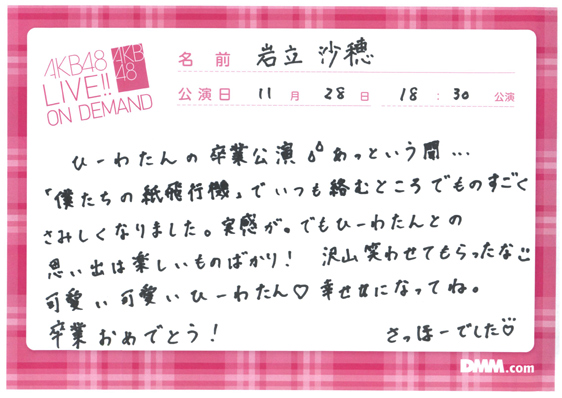 AKB48
LIVE!!
ON DEMAND
AKB
48
名前 岩立 沙穂
公演日 11月 28日 18:30 公演
ひーわたんの卒業公演 あっという間…
「僕たちの紙飛行機」でいつも絡むところでものすごく
さみしくなりました。実感が。でもひーわたんとの
思い出は楽しいものばかり! 沢山笑わせてもらったな
可愛い可愛いひーわたん♡ 幸せになってね。
卒業おめでとう!
さっほーでした♡
DMM.com